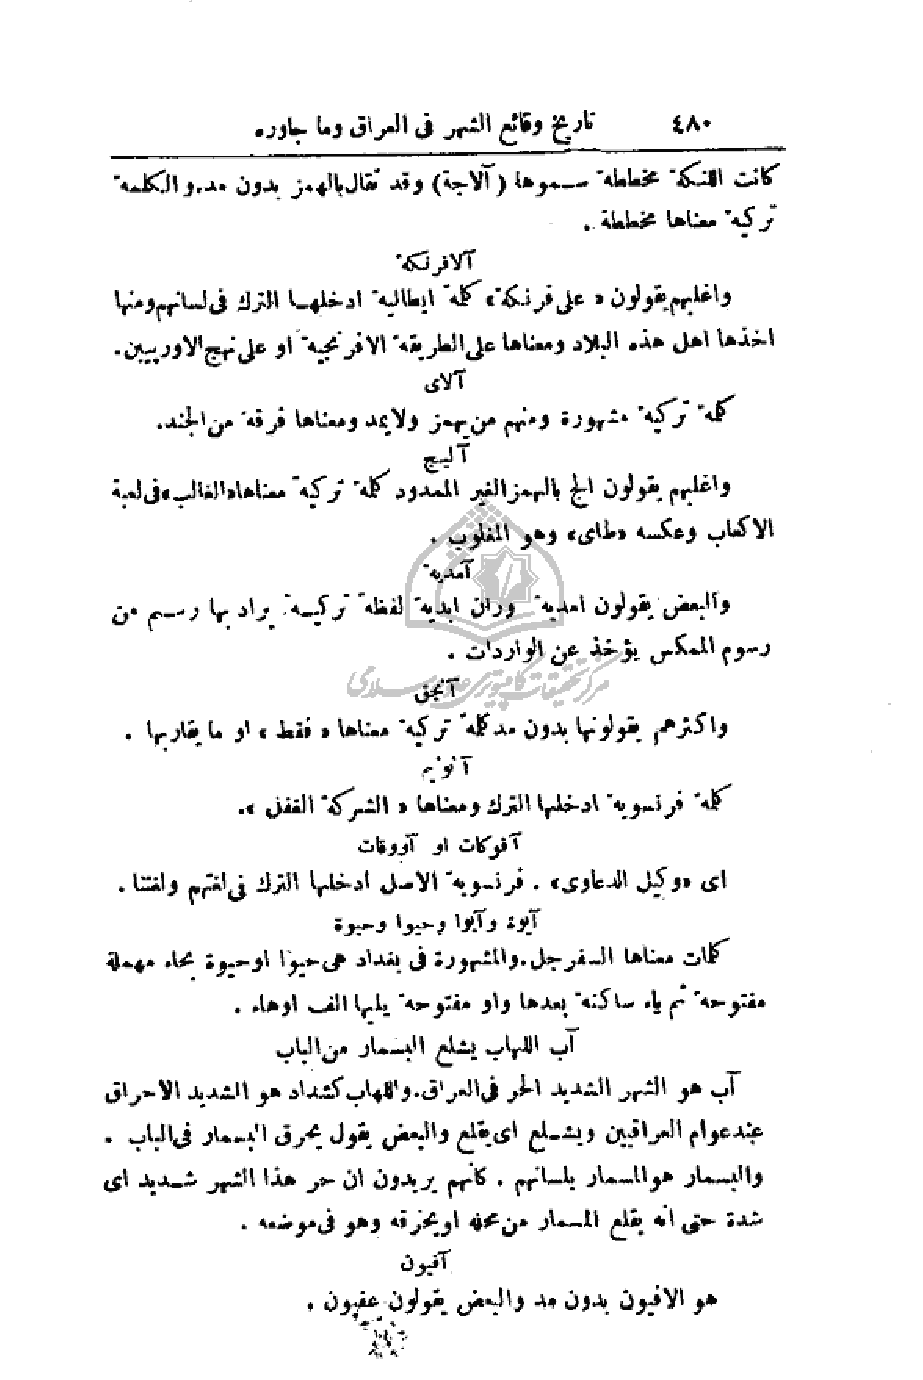 ٤٨٠ تاريخ وقائع الشهر فى العراق وما جاوره
كانت اللنكة مخططة سموها (آلاجة) وقد تقال بالهمز بدون مد. والكلمة
تركية معناها مخططة .
آلافرنكة
واغلبهم يقولون «على فرنكة» كلمة ايطالية ادخلها الترك فى لسانهم ومنها
اخذها اهل هذه البلاد ومعناها على الطريقة الافرنجية او على نهج الاوربيين.
آلاى
كلمة تركية مشهورة ومنهم من يهمز ولايمد ومعناها فرقة من الجند.
آليج
واغلبهم يقولون الج بالهمز الغير الممدود كلمة تركية معناها «الغالب» فى لعبة
الاكعاب وعكسه «طاى» وهو المغلوب .
آمدية
والبعض يقولون امدية وزان ابدية لفظة تركية يراد بها رسم من
رسوم المكس يؤخذ عن الواردات .
مركز تحقيقات كامپيوترى علوم اسلامى
آنجق
واكثرهم يقولونها بدون مد كلمة تركية معناها «فقط» او ما يقاربها .
آنونيم
كلمة فرنسوية ادخلها الترك ومعناها «الشركة الغفل».
آفوكات او آووقات
اى «وكيل الدعاوى» . فرنسوية الاصل ادخلها الترك فى لغتهم ولغتنا .
آيوة وآيوا وحيوا وحيوة
كلمات معناها السفرجل. والمشهورة فى بغداد هى حيوا او حيوة بحاء مهملة
مفتوحة ثم ياء ساكنة بعدها واو مفتوحة يليها الف اوهاء .
آب اللهاب يشلع البسمار من الباب
آب هو الشهر الشديد الحر فى العراق. واللهاب كشداد هو الشديد الاحراق
عند عوام العراقيين ويشلع اى يقلع والبعض يقول يحرق البسمار فى الباب .
والبسمار هو المسمار بلسانهم . كأنهم يريدون ان حر هذا الشهر شديد اى
شدة حتى انه يقلع المسمار من محله او يحرقه وهو فى موضعه .
آفيون
هو الافيون بدون مد والبعض يقولون عفيون .